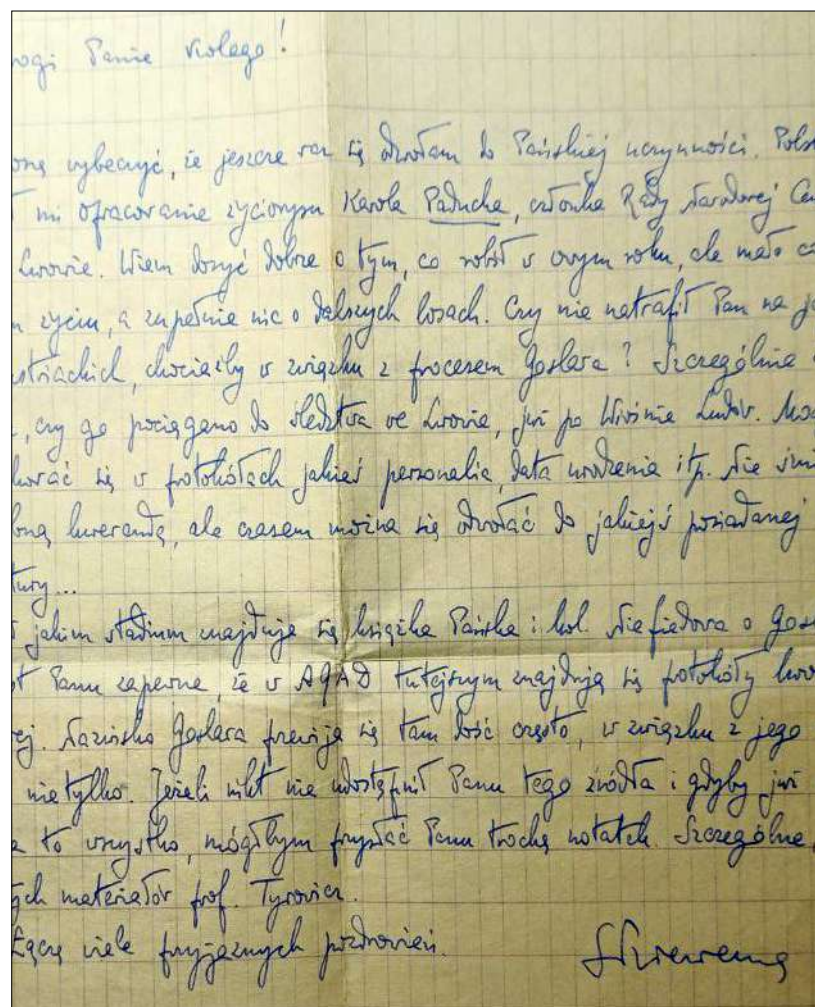 ogi Panie Kolego!
oszę wybaczyć, że jeszcze raz się odwołam do Pańskiej uczynności. Polsk
ł mi opracowanie życiorysu Karola Paducha, członka Rady Narodowej Cen
Lwowie. Wiem dosyć dobrze o tym, co robił w owym roku, ale mało c
m życiu, a zupełnie nic o dalszych losach. Czy nie natrafił Pan na ja
striackich, chociażby w związku z procesem Goslara? Szczególnie
, czy go pociągano do śledztwa we Lwowie, już po Wiośnie Ludów. Mog
hować się w protokółach jakieś personalia, data urodzenia itp. Nie
oną kwerendę, ale czasem można się odwołać do jakiejś posiadanej
tury...
jakim stadium znajduje się książka Pańska i kol. Niefiedowa o Gos
t Panu zapewne, że w AGAD tutejszym znajdują się protokóły lwo
ej. Nazwisko Goslara przewija się tam dość często, w związku z jego
nietylko. Jeżeli nikt nie udostępnił Panu tego źródła i gdyby już
a to wszystko, mógłbym przysłać Panu trochę notatek. Szczególnie,
ych materiałów prof. Tyrowicz.
Łączę wiele przyjaznych pozdrowień.